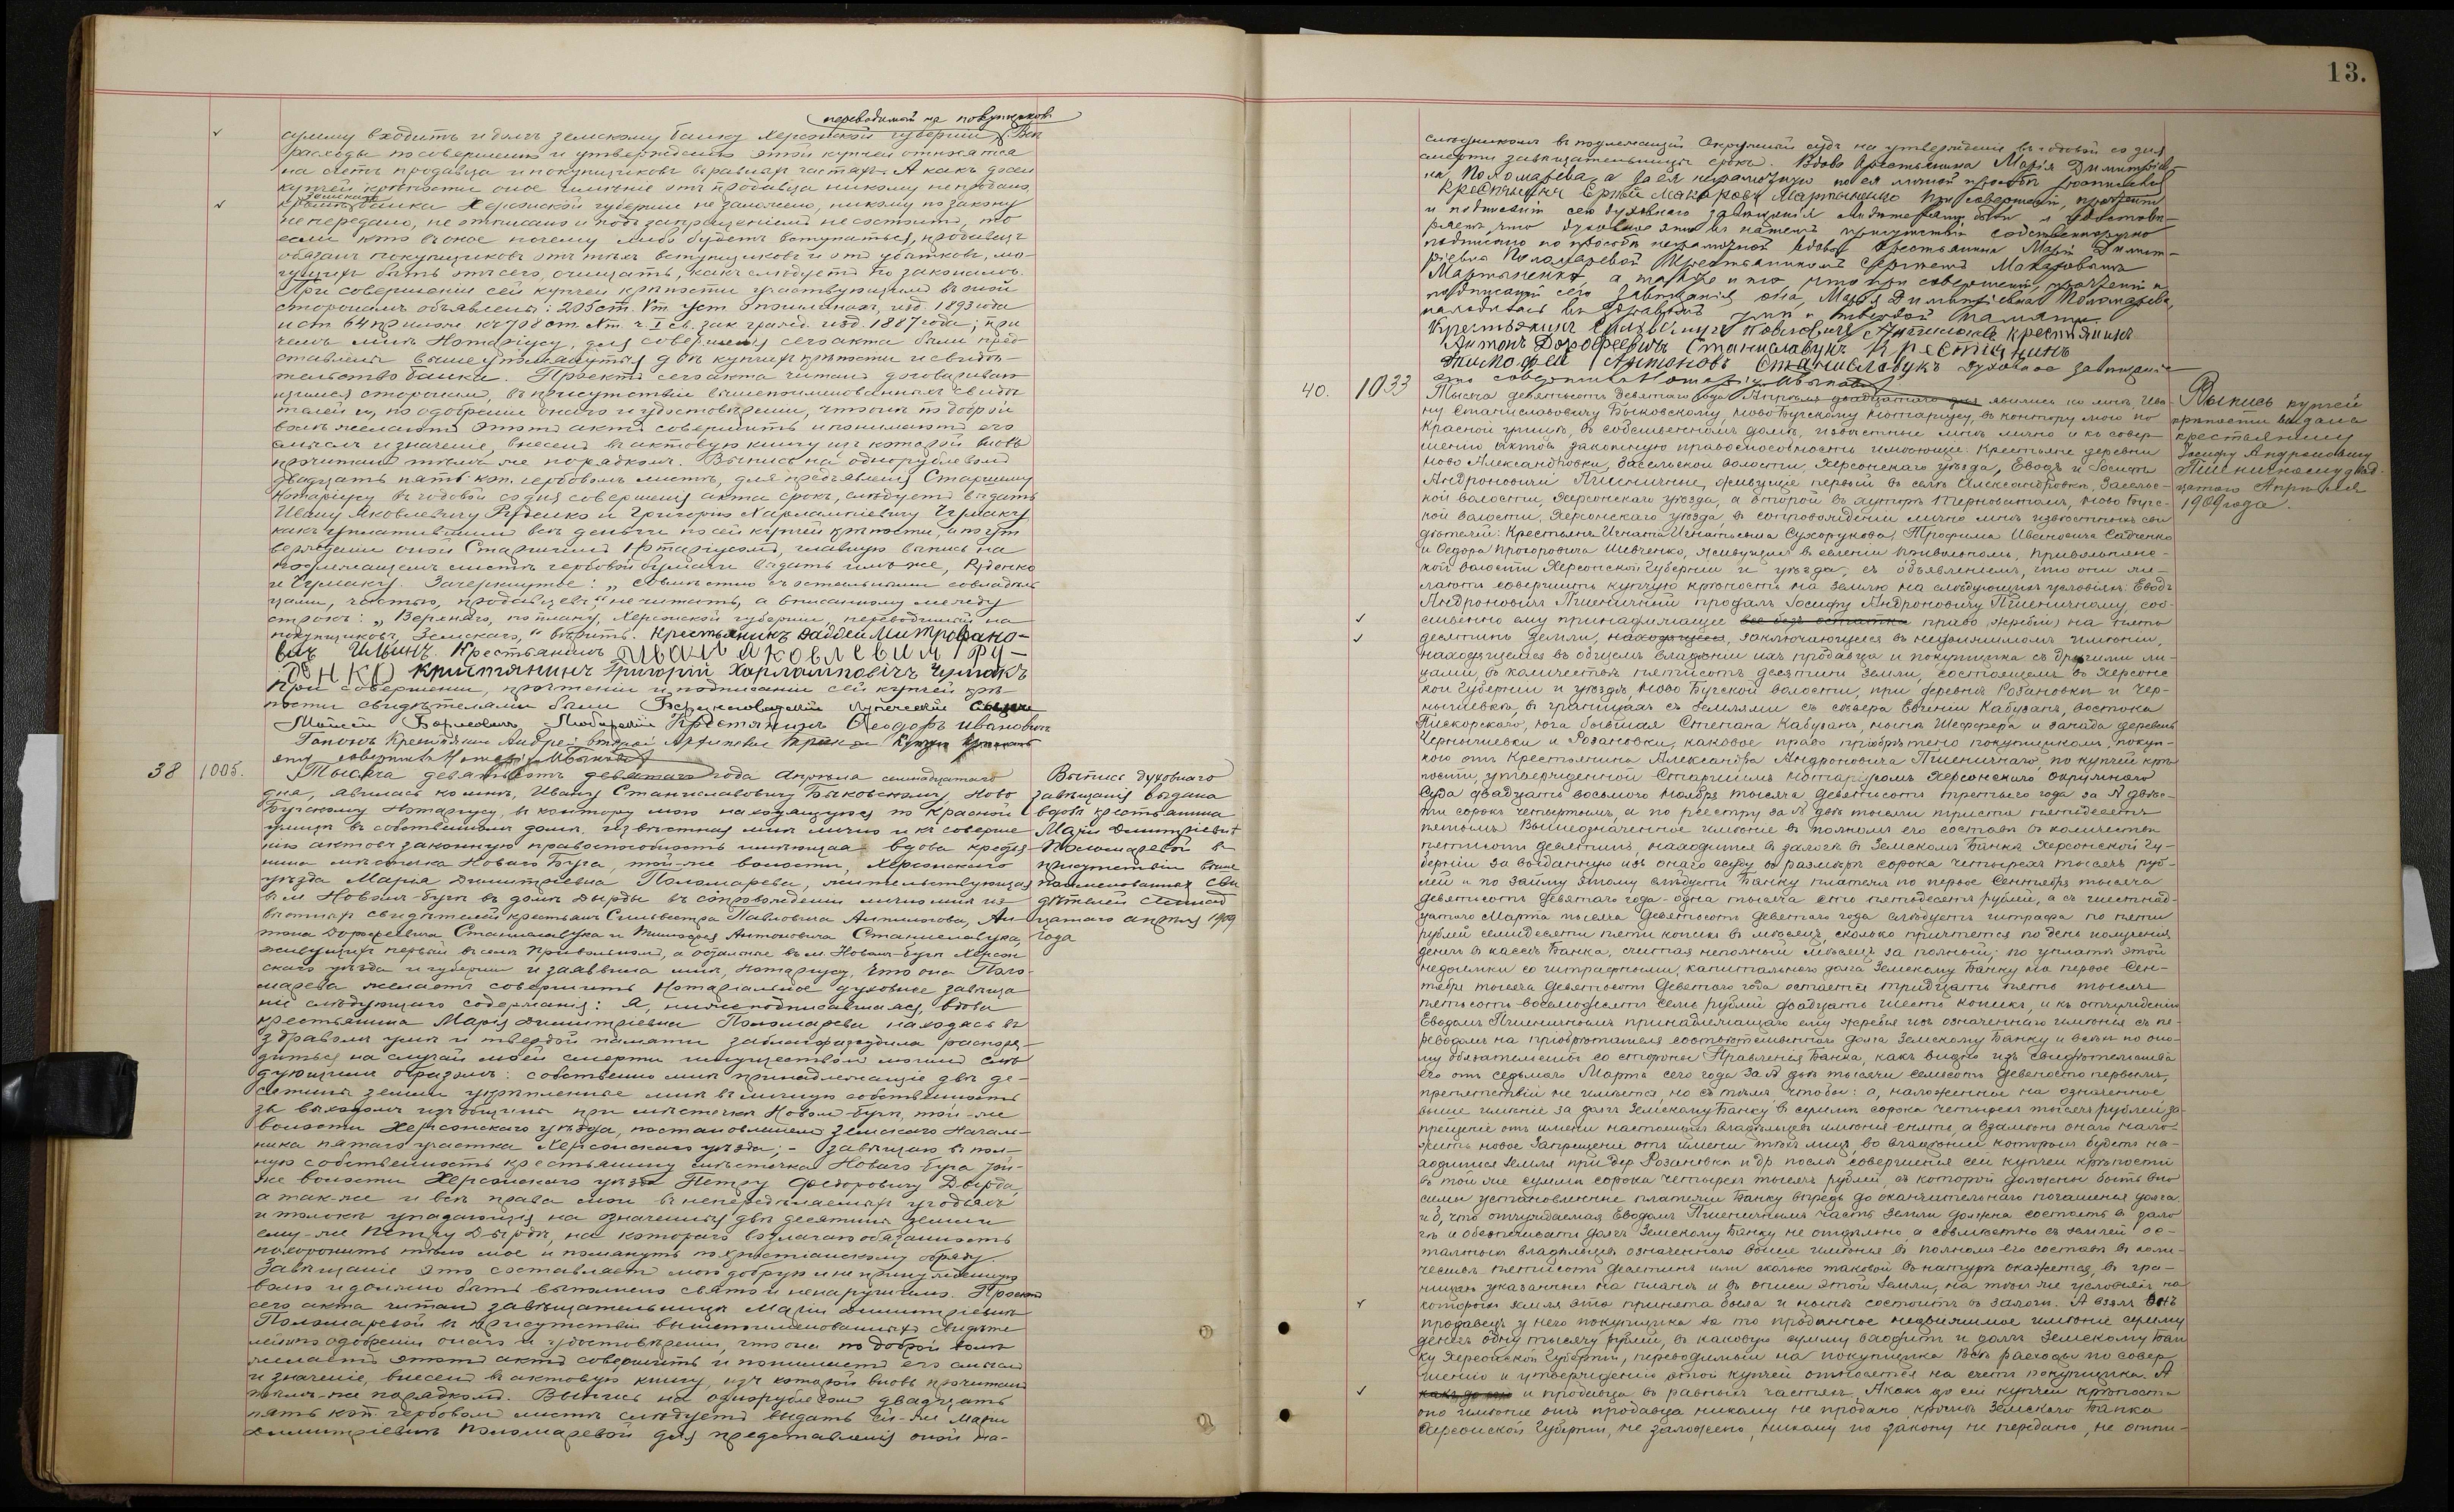 переводимый на покупщиковъ
сумму входитъ и долгъ Земскому Банку Херсонской губерніи. Все
расходы по совершенію и утвержденію этой купчей относятся
на счетъ продавца и покупщиковъ въ равныхъ частяхъ. А какъ до сей
купчей крѣпости оное имѣніе отъ продавца никому не продано,
Земскаго
кромѣ Банка Херсонской губерніи не заложено, никому по закону
не передано, не отписано и подъ запрещеніемъ не состоитъ, то
если кто въ оное почему либо будетъ вступаться, продавецъ
обязанъ покупщиковъ отъ тѣхъ вступщиковъ и отъ убытковъ, мо-
гущихъ быть отъ сего, очищать, какъ слѣдуетъ по законамъ.
При совершеніи сей купчей крѣпости участвующимъ въ оной
сторонамъ объявлены: 205 ст. V т. Уст. о пошлинахъ, изд. 1893 года
и ст. 64 прилож. къ 708 ст. X т. ч. I св. зак. гражд. изд. 1887 года; при
чемъ мнѣ Нотаріусу, для совершенія сего акта были пред-
ставлены вышеупомянутыя двѣ купчія крѣпости и свидѣ-
тельство Банка. Проектъ сего акта читанъ договариваю-
щимся сторонамъ, въ присутствіи вышепоименованныхъ свидѣ-
телей и, по одобреніи онаго и удостовѣреніи, что они по доброй
волѣ желаютъ этотъ актъ совершить и понимаютъ его
смыслъ и значеніе, внесенъ въ актовую книгу изъ которой вновь
прочитанъ тѣмъ-же порядкомъ. Выпись на однорублевомъ
двадцать пять коп. гербовомъ листѣ, для предъявленія Старшему
Нотаріусу въ годовой со дня совершенія акта срокъ, слѣдуетъ выдать
Ивану Яковлевичу Руденко и Григорію Харлампіевичу Чумаку
какъ уплатившимъ всѣ деньги по сей купчей крѣпости, а по ут-
вержденіи оной Старшимъ Нотаріусомъ, главную выпись на
подлежащемъ листѣ гербовой бумаги выдать имъ-же, Руденко
и Чумаку. Зачеркнутое: „совмѣстно съ остальными совладѣль-
цами, частью, продавцевъ“ не читать, а вписанному между
строкъ: „Верхняго, по плану, Херсонской губерніи, переводимый на
покупщиковъ, Земскаго,“ вѣрить. Крестьянинъ Фаддей Митрофано-
вичъ Ильинъ. Крестьянинъ Иванъ Яковлевичъ Ру-
денко Кристянинъ Григорій Харламповичъ Чумакъ
При совершеніи, прочтеніи и подписаніи сей купчей крѣ-
пости свидѣтелями были
Мойсей Крестянинъ Феодоръ Ивановичъ
Гапонъ Крестянинъ Андрей
актъ совершилъ Нотаріусъ Ив. Быковскій
38 1005. Тысяча девятьсотъ девятаго года Апрѣля семнадцатаго
дня, явилась ко мнѣ, Ивану Станиславовичу Быковскому, Ново-
Бугскому Нотаріусу, въ контору мою находящуюся по Красной
улицѣ въ собственномъ домѣ, извѣстная мнѣ лично и къ соверше-
нію актовъ законную правоспособность имѣющая вдова кресть-
янина мѣстечка Новаго Буга, той-же волости, Херсонскаго
уѣзда Марія Димитріевна Поломарева, жительствующая
въ м. Новомъ-Бугѣ въ домѣ Дырды въ сопровожденіи лично мнѣ из-
вѣстныхъ свидѣтелей крестьянъ Сильвестра Павловича Антипова, Ан-
тона Дорофеевича Станиславчука и Тимофея Антоновича Станиславчука,
живущихъ первый въ селѣ Привольномъ, а остальные въ м. Новомъ-Бугѣ Херсон-
скаго уѣзда и губерніи и заявила мнѣ, Нотаріусу, что она Поло-
марева желаетъ совершить Нотаріальное духовное завѣща-
ніе слѣдующаго содержанія: Я, нижеподписавшаяся, вдова
крестьянина Марія Димитріевна Поломарева находясь въ
здравомъ умѣ и твердой памяти заблагоразсудила распоря-
диться на случай моей смерти имуществомъ моимъ слѣ-
дующимъ образомъ: собственно мнѣ принадлежащіе двѣ де-
сятины земли укрѣпленные мнѣ въ личную собственность
за выходомъ изъ общины при мѣстечкѣ Новомъ-Бугѣ, той-же
волости Херсонскаго уѣзда, постановленіемъ Земскаго Началь-
ника пятаго участка Херсонскаго уѣзда; - завѣщаю въ пол-
ную собственность крестьянину мѣстечка Новаго Буга той-
же волости Херсонскаго уѣзда Петру Федоровичу Дырда,
а так-же и всѣ права мои въ непередѣляемыхъ угодьяхъ
и толокѣ упадающія на означенныя двѣ десятины земли
ему-же Петру Дырдѣ, на котораго возлагаю обязанность
похоронить тѣло мое и помянуть по христіанскому обряду.
Завѣщаніе это составляетъ мою добрую и не принужденную
волю и должно быть выполнено свято и ненарушимо. Проектъ
сего акта читанъ завѣщательницѣ Маріи Димитріевнѣ
Поломаревой въ присутствіи вышепоименованныхъ свидѣте-
лей и по одобреніи онаго и удостовѣреніи, что она по доброй волѣ
желаетъ этотъ актъ совершить и понимаетъ его смыслъ
и значеніе, внесенъ въ актовую книгу, изъ которой вновь прочитанъ
тѣмъ-же порядкомъ. Выпись на однорублевомъ двадцать
пять коп. гербовомъ листѣ слѣдуетъ выдать ей-же Маріи
Димитріевнѣ Поломаревой для представленія оной на-
Выпись духовнаго
завѣщанія выдана
вдовѣ крестьянина
Маріи Димитріевнѣ
Поломаревой въ
присутствіи выше
поименованныхъ сви-
дѣтелей семнад-
цатаго апрѣля 1909
года
13.
слѣдникомъ въ подлежащій Окружный судъ на утвержденіе въ годовой со дня
смерти завѣщательницы срокъ. Вдова крестьянина Марія Димитріев-
на Поломарева, а за ея неграмотную по ея личной просьбѣ росписался
Крестьянинъ Сергѣй Макаровъ Мартыненко При совершеніи, прочтеніи
и подписаніи сего духовнаго завѣщанія свидѣтелями были и удостовѣ-
ряемъ что духовное это въ нашемъ присутствіи собственноручно
подписано по просьбѣ неграмотной вдовы крестьянина Маріи Димит-
ріевны Поломаревой Крестьяниномъ Сергѣемъ Макаровымъ
Мартыненко, а также и то, что при совершеніи, прочтеніи и
подписаніи сего завѣщанія она, Марія Димитріевна Поломарева,
находилась въ здравомъ умѣ и твердой памяти.
Крестьянинъ Сильвестръ Павловичъ Антиповъ Крестянинъ
Антонъ Дорофеевичъ Станиславукъ Крестянинъ
Тимофей Антоновъ Станиславукъ Духовное завѣщаніе
это совершилъ Нотаріусъ Ив. Быковскій
40. 1033 Тысяча девятьсотъ девятаго года Апрѣля двадцатаго дня явились ко мнѣ, Ива-
ну Станиславовичу Быковскому, Ново-Бугскому Нотаріусу, въ контору мою по
Красной улицѣ, въ собственномъ домѣ, извѣстные мнѣ лично и къ совер-
шенію актовъ законную правоспособность имѣющіе: Крестьяне деревни
Ново Александровки, Засельской волости, Херсонскаго уѣзда, Еводъ и Іосифъ
Андроновичи Пшеничные, живущіе первый въ селѣ Александровкѣ, Засельс-
кой волости, Херсонскаго уѣзда, а второй въ хуторѣ Терноватомъ, Ново Бугс-
кой волости, Херсонскаго уѣзда, въ сопровожденіи лично мнѣ извѣстныхъ сви-
дѣтелей: Крестьянъ Игната Игнатьевича Сухорукова, Трофима Ивановича Савченко
и Федора Прохоровича Шевченко, живущихъ въ селеніи Привольномъ, Привольненс-
кой волости Херсонской Губерніи и уѣзда, съ объявленіемъ, что они же-
лаютъ совершить купчую крѣпость на землю на слѣдующихъ условіяхъ: Еводъ
Андроновичъ Пшеничный продалъ Іосифу Андроновичу Пшеничному, соб-
ственно ему принадлежащее все безъ остатка право (жребій) на пять
десятинъ земли, находящуюся, заключающееся въ недвижимомъ имѣніи,
находящемся въ общемъ владѣніи ихъ продавца и покупщика съ другими ли-
цами, въ количествѣ пятисотъ десятинъ земли, состоящемъ въ Херсонс-
кой Губерніи и уѣздѣ, Ново Бугской волости, при деревнѣ Розановкѣ и Чер-
нышевкѣ, въ границахъ съ землями съ сѣвера Евгеніи Кабузанъ, востока
Пивкорскаго, юга бывшая Степана Кабузанъ, нынѣ Шеффера и запада деревень
Чернышевки и Розановки, каковое право пріобрѣтено покупщикомъ, покуп-
кою отъ Крестьянина Александра Андроновича Пшеничнаго, по купчей крѣ-
пости, утвержденной Старшимъ Нотаріусомъ Херсонскаго Окружнаго
Суда двадцать восьмого Ноября тысяча девятьсотъ третьяго года за № двѣс-
ти сорокъ четвертымъ, а по реестру за № двѣ тысячи триста пятьдесятъ
пятымъ. Вышеозначенное имѣніе въ полномъ его составѣ въ количествѣ
пятисотъ десятинъ, находится въ залогѣ въ Земскомъ Банкѣ Херсонской Гу-
берніи за выданную изъ онаго ссуду въ размѣрѣ сорока четырехъ тысячъ руб-
лей и по займу этому слѣдуетъ Банку платежа по первое Сентября тысяча
девятьсотъ девятаго года - одна тысяча сто пятьдесятъ рублей, а съ шестнад-
цатаго Марта тысяча девятьсотъ девятаго года слѣдуетъ штрафа по пяти
рублей семидесяти пяти копѣекъ въ мѣсяцъ, сколько причтется по день полученія
денегъ въ кассѣ Банка, считая неполный мѣсяцъ за полный; по уплатѣ этой
недоимки со штрафными, капитальнаго долга Земскому Банку на первое Сен-
тября тысяча девятьсотъ девятаго года остается тридцать пять тысячъ
пятьсотъ восемьдесятъ семь рублей двадцать шесть копѣекъ, и къ отчужденію
Еводомъ Пшеничнымъ принадлежащаго ему жребія изъ означеннаго имѣнія съ пе-
реводомъ на пріобрѣтателя соотвѣтственнаго долга Земскому Банку и всѣхъ по оно-
му обязательствъ со стороны Правленія Банка, какъ видно изъ свидѣтельства
его отъ седьмого Марта сего года за № двѣ тысячи семьсотъ девяносто первымъ,
препятствій не имѣется, но съ тѣмъ, чтобы: а, наложенное на означенное
выше имѣніе за долгъ Земскому Банку въ суммѣ сорока четырехъ тысячъ рублей за-
прещеніе отъ имени настоящихъ владѣльцевъ имѣнія снять, а взамѣнъ онаго нало-
жить новое запрещеніе отъ имени тѣхъ лицъ, во владѣніи которыхъ будетъ на-
ходиться земля при дер. Розановкѣ и др. послѣ совершенія сей купчей крѣпости
въ той же суммѣ сорока четырехъ тысячъ рублей, съ которой должны быть вно-
симы установленные платежи Банку впредь до окончательнаго погашенія долга
и б, что отчуждаемая Еводомъ Пшеничнымъ часть земли должна состоять въ зало-
гѣ и обезпечивать долгъ Земскому Банку не отдѣльно, а совмѣстно съ землей ос-
тальныхъ владѣльцевъ означеннаго выше имѣнія въ полномъ его составѣ въ коли-
чествѣ пятисотъ десятинъ или сколько таковой въ натурѣ окажется, въ гра-
ницахъ указанныхъ на планѣ и въ описи этой земли, на тѣхъ же условіяхъ на
которыхъ земля эта принята была и нынѣ состоитъ въ залогѣ. А взялъ онъ
продавецъ у него покупщика за то проданное недвижимое имѣніе сумму
денегъ одну тысячу рублей, въ каковую сумму входитъ и долгъ Земскому Бан-
ку Херсонской Губерніи, переводимый на покупщика. Всѣ расходы по совер-
шенію и утвержденію этой купчей относятся на счетъ покупщика. А
какъ до сей и продавца въ равныхъ частяхъ. А какъ до сей купчей крѣпости
оно имѣніе отъ продавца никому не продано, кромѣ Земскаго Банка
Херсонской Губерніи, не заложено, никому по закону не передано, не отпи-
Выпись купчей
крѣпости выдана
крестьянину
Іосифу Андроновичу
Пшеничному двад-
цатаго Апрѣля
1909 года.